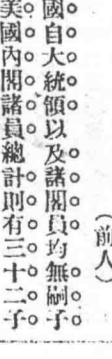 （前人）
國自大統領以及諸閣員均無嗣子
美國內閣諸員總計則有三十二子